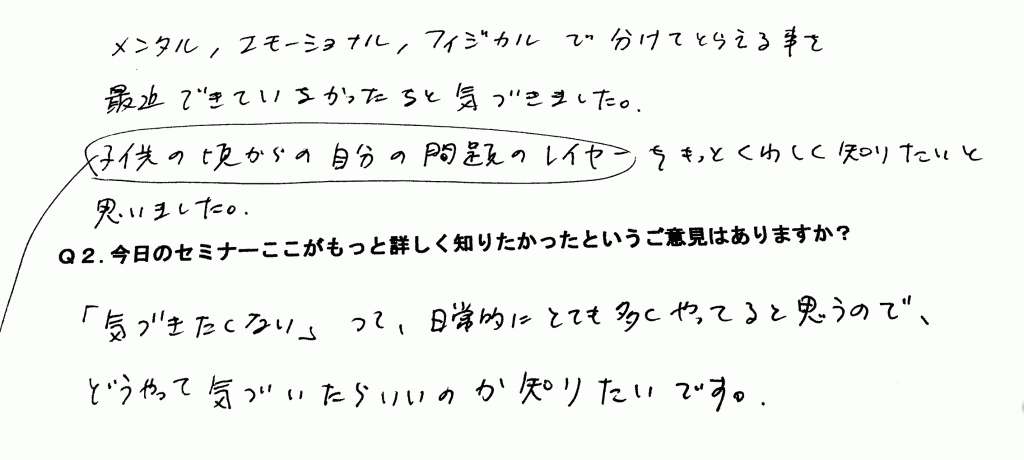 メンタル，エモーショナル，フィジカルで分けてとらえる事を
最近できていなかったなと気づきました。
子供の頃からの自分の問題のレイヤーをもっとくわしく知りたいと
思いました。
Ｑ２．今日のセミナーここがもっと詳しく知りたかったというご意見はありますか？
「気づきたくない」って、日常的にとても多くやってると思うので、
どうやって気づいたらいいのか知りたいです。